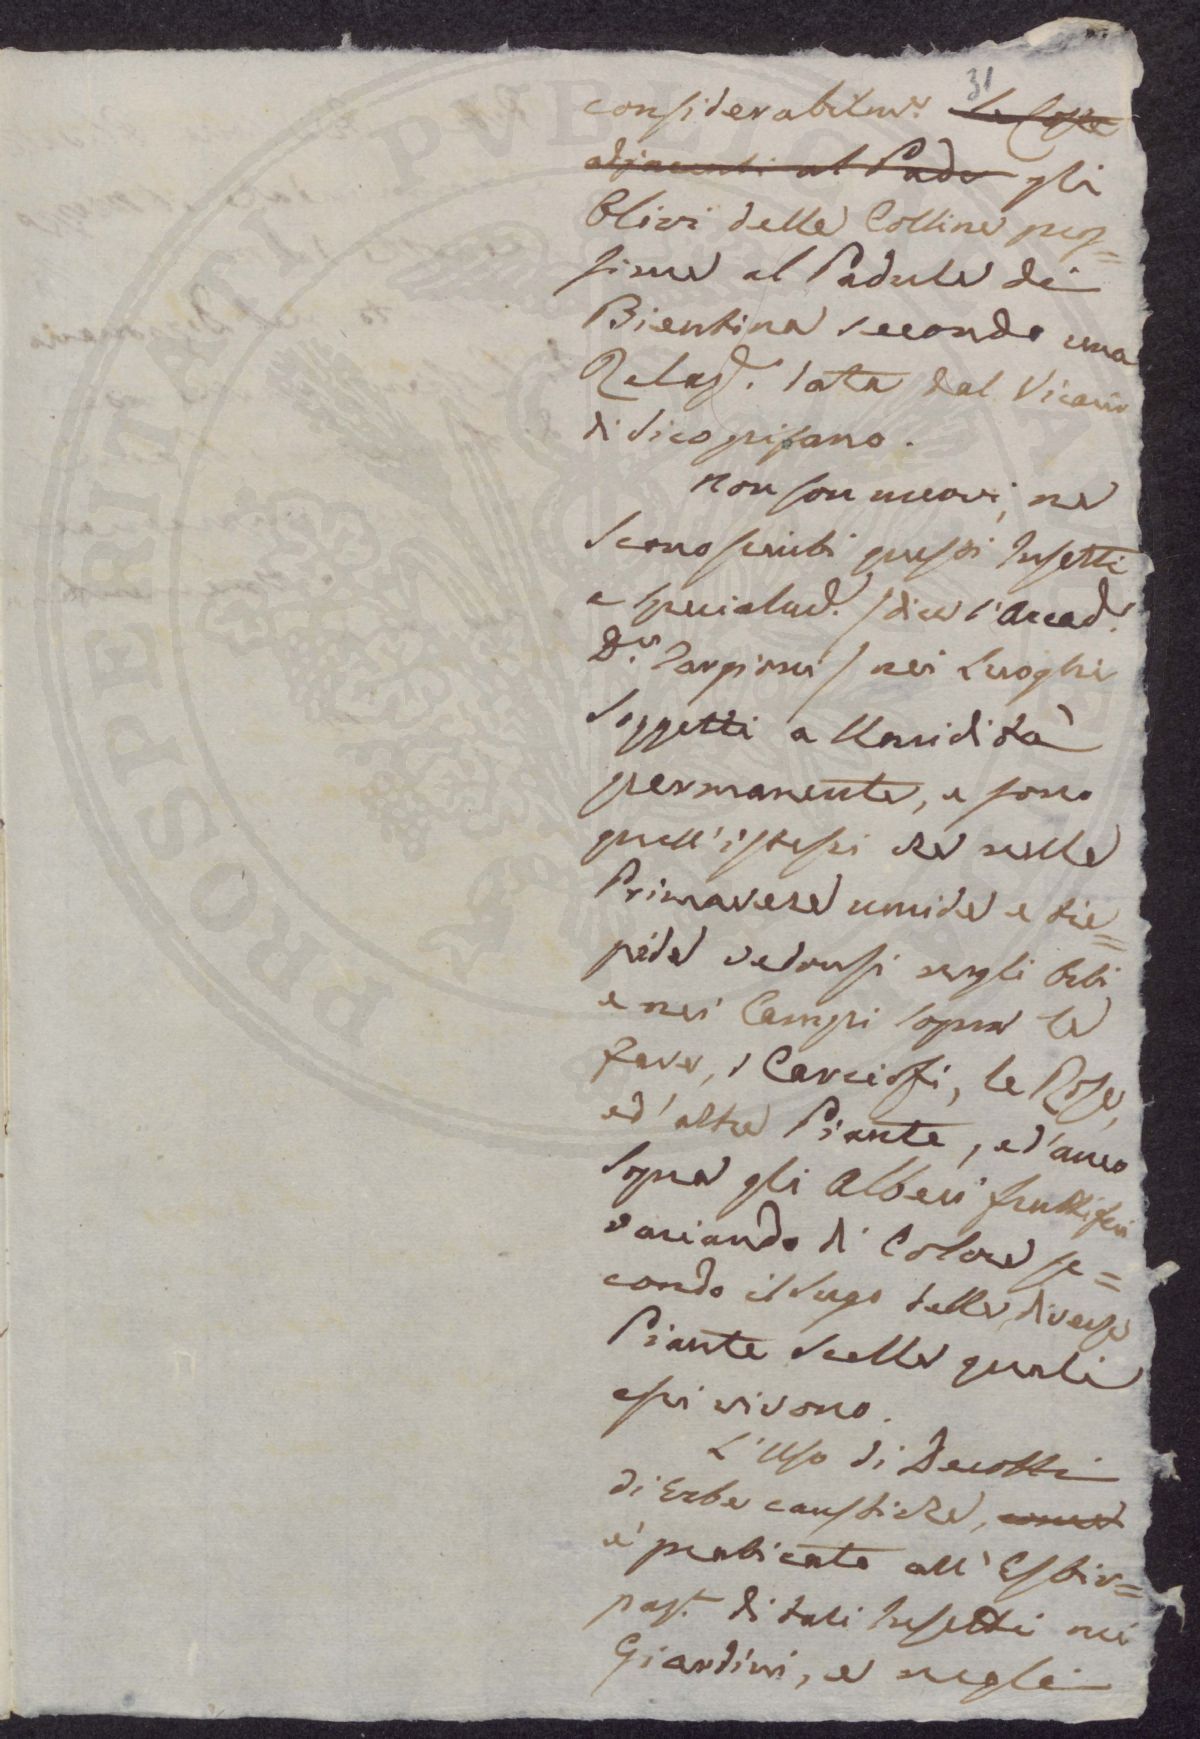 31
considerabilm.e le Coste
adjacenti al Padu gli
Olivi delle Colline pros=
sime al Padule di
Bientina secondo una
Relaz.e data dal Vicario
di Vicopisano.
Non son nuovi, ne
sconosciuti questi Insetti
e specialm.e /dice l'Accad.
D.r Targioni/ nei Luoghi
soggetti a Umidità
permanente, e sono
quell'istessi che nelle
Primavere umide e tie=
pide vedonsi negli Orti
e nei Campi sopra le
Fave, i Carciofi, le Rose,
ed'altre Piante, ed'anco
sopra gli Alberi fruttiferi
variando di Colore se=
condo il sugo delle diverse
Piante sulle quali
essi vivono.
L'Uso di Decotti
di Erbe caustiche, come
e' praticato all'Estir=
paz.e di tali Insetti nei
Giardini, e negli
PROSPERITATI PVBLICAE